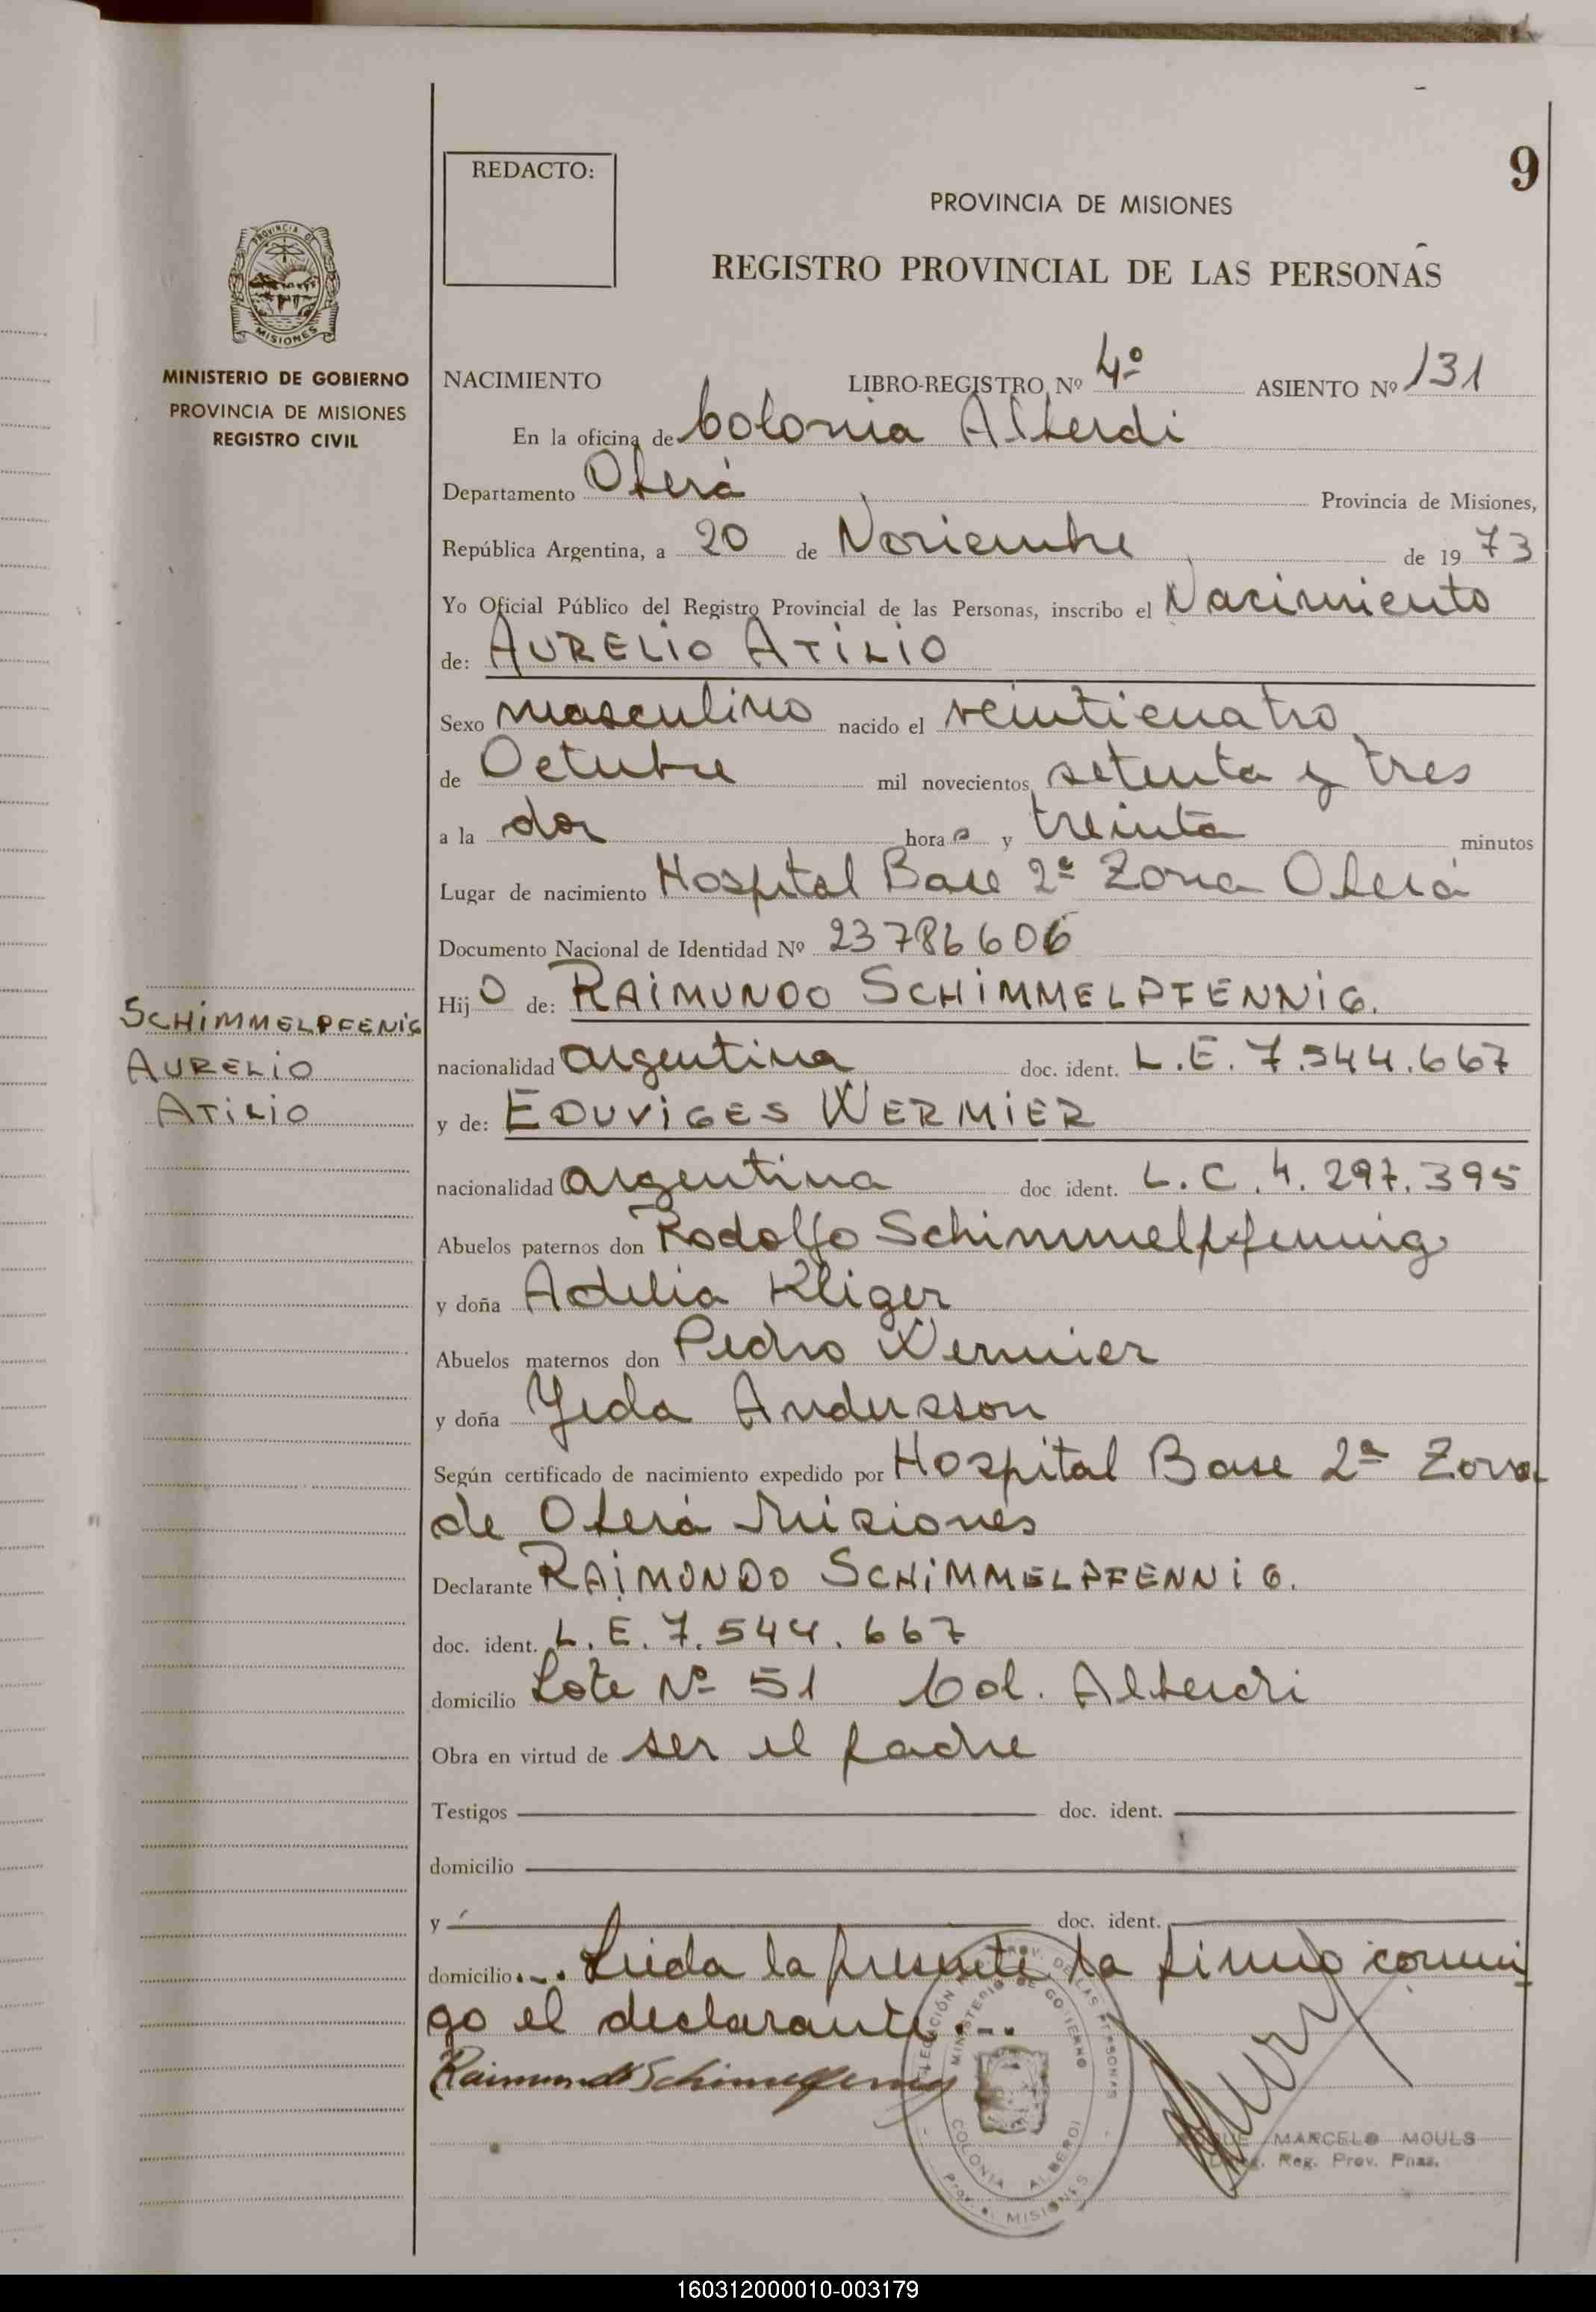 9
REDACTO:
PROVINCIA DE MISIONES
REGISTRO PROVINCIAL DE LAS PERSONAS
PROVINCIA DE
MISIONES
MINISTERIO DE GOBIERNO
PROVINCIA DE MISIONES
REGISTRO CIVIL
NACIMIENTO LIBRO-REGISTRO Nº 4º ASIENTO Nº 131
En la oficina de Colonia Alberdi
Departamento Oberá Provincia de Misiones,
República Argentina, a 20 de Noviembre de 1973
Yo Oficial Público del Registro Provincial de las Personas, inscribo el Nacimiento
de: AURELIO ATILIO
Sexo masculino nacido el veinticuatro
de Octubre mil novecientos setenta y tres
a la dos horas y treinta minutos
Lugar de nacimiento Hospital Base 2ª Zona Oberá
Documento Nacional de Identidad Nº 23786606
Hijo de: RAIMUNDO SCHIMMELPFENNIG.
SCHIMMELPFENIG
AURELIO
ATILIO
nacionalidad argentina doc. ident. L.E. 7.544.667
y de: EDUVIGES WERMIER
nacionalidad argentina doc ident. L.C. 4.297.395
Abuelos paternos don Rodolfo Schimmelpfennig
y doña Adelia Kliger
Abuelos maternos don Pedro Wermier
y doña Yeda Andersson
Según certificado de nacimiento expedido por Hospital Base 2ª Zona
de Oberá Misiones
Declarante RAIMUNDO SCHIMMELPFENNIG.
doc. ident. L.E. 7.544.667
domicilio Lote Nº 51 Col. Alberdi
Obra en virtud de ser el padre
Testigos doc. ident.
domicilio
y doc. ident.
domicilio. Leida la presente la firma conmi
go el declarante.
Raimundo Schimelfenig
MINISTERIO DE GOBIERNO
COLONIA ALBERDI
MISIONES
MARCELO MOULS
Reg. Prov. Pnas.
160312000010-003179